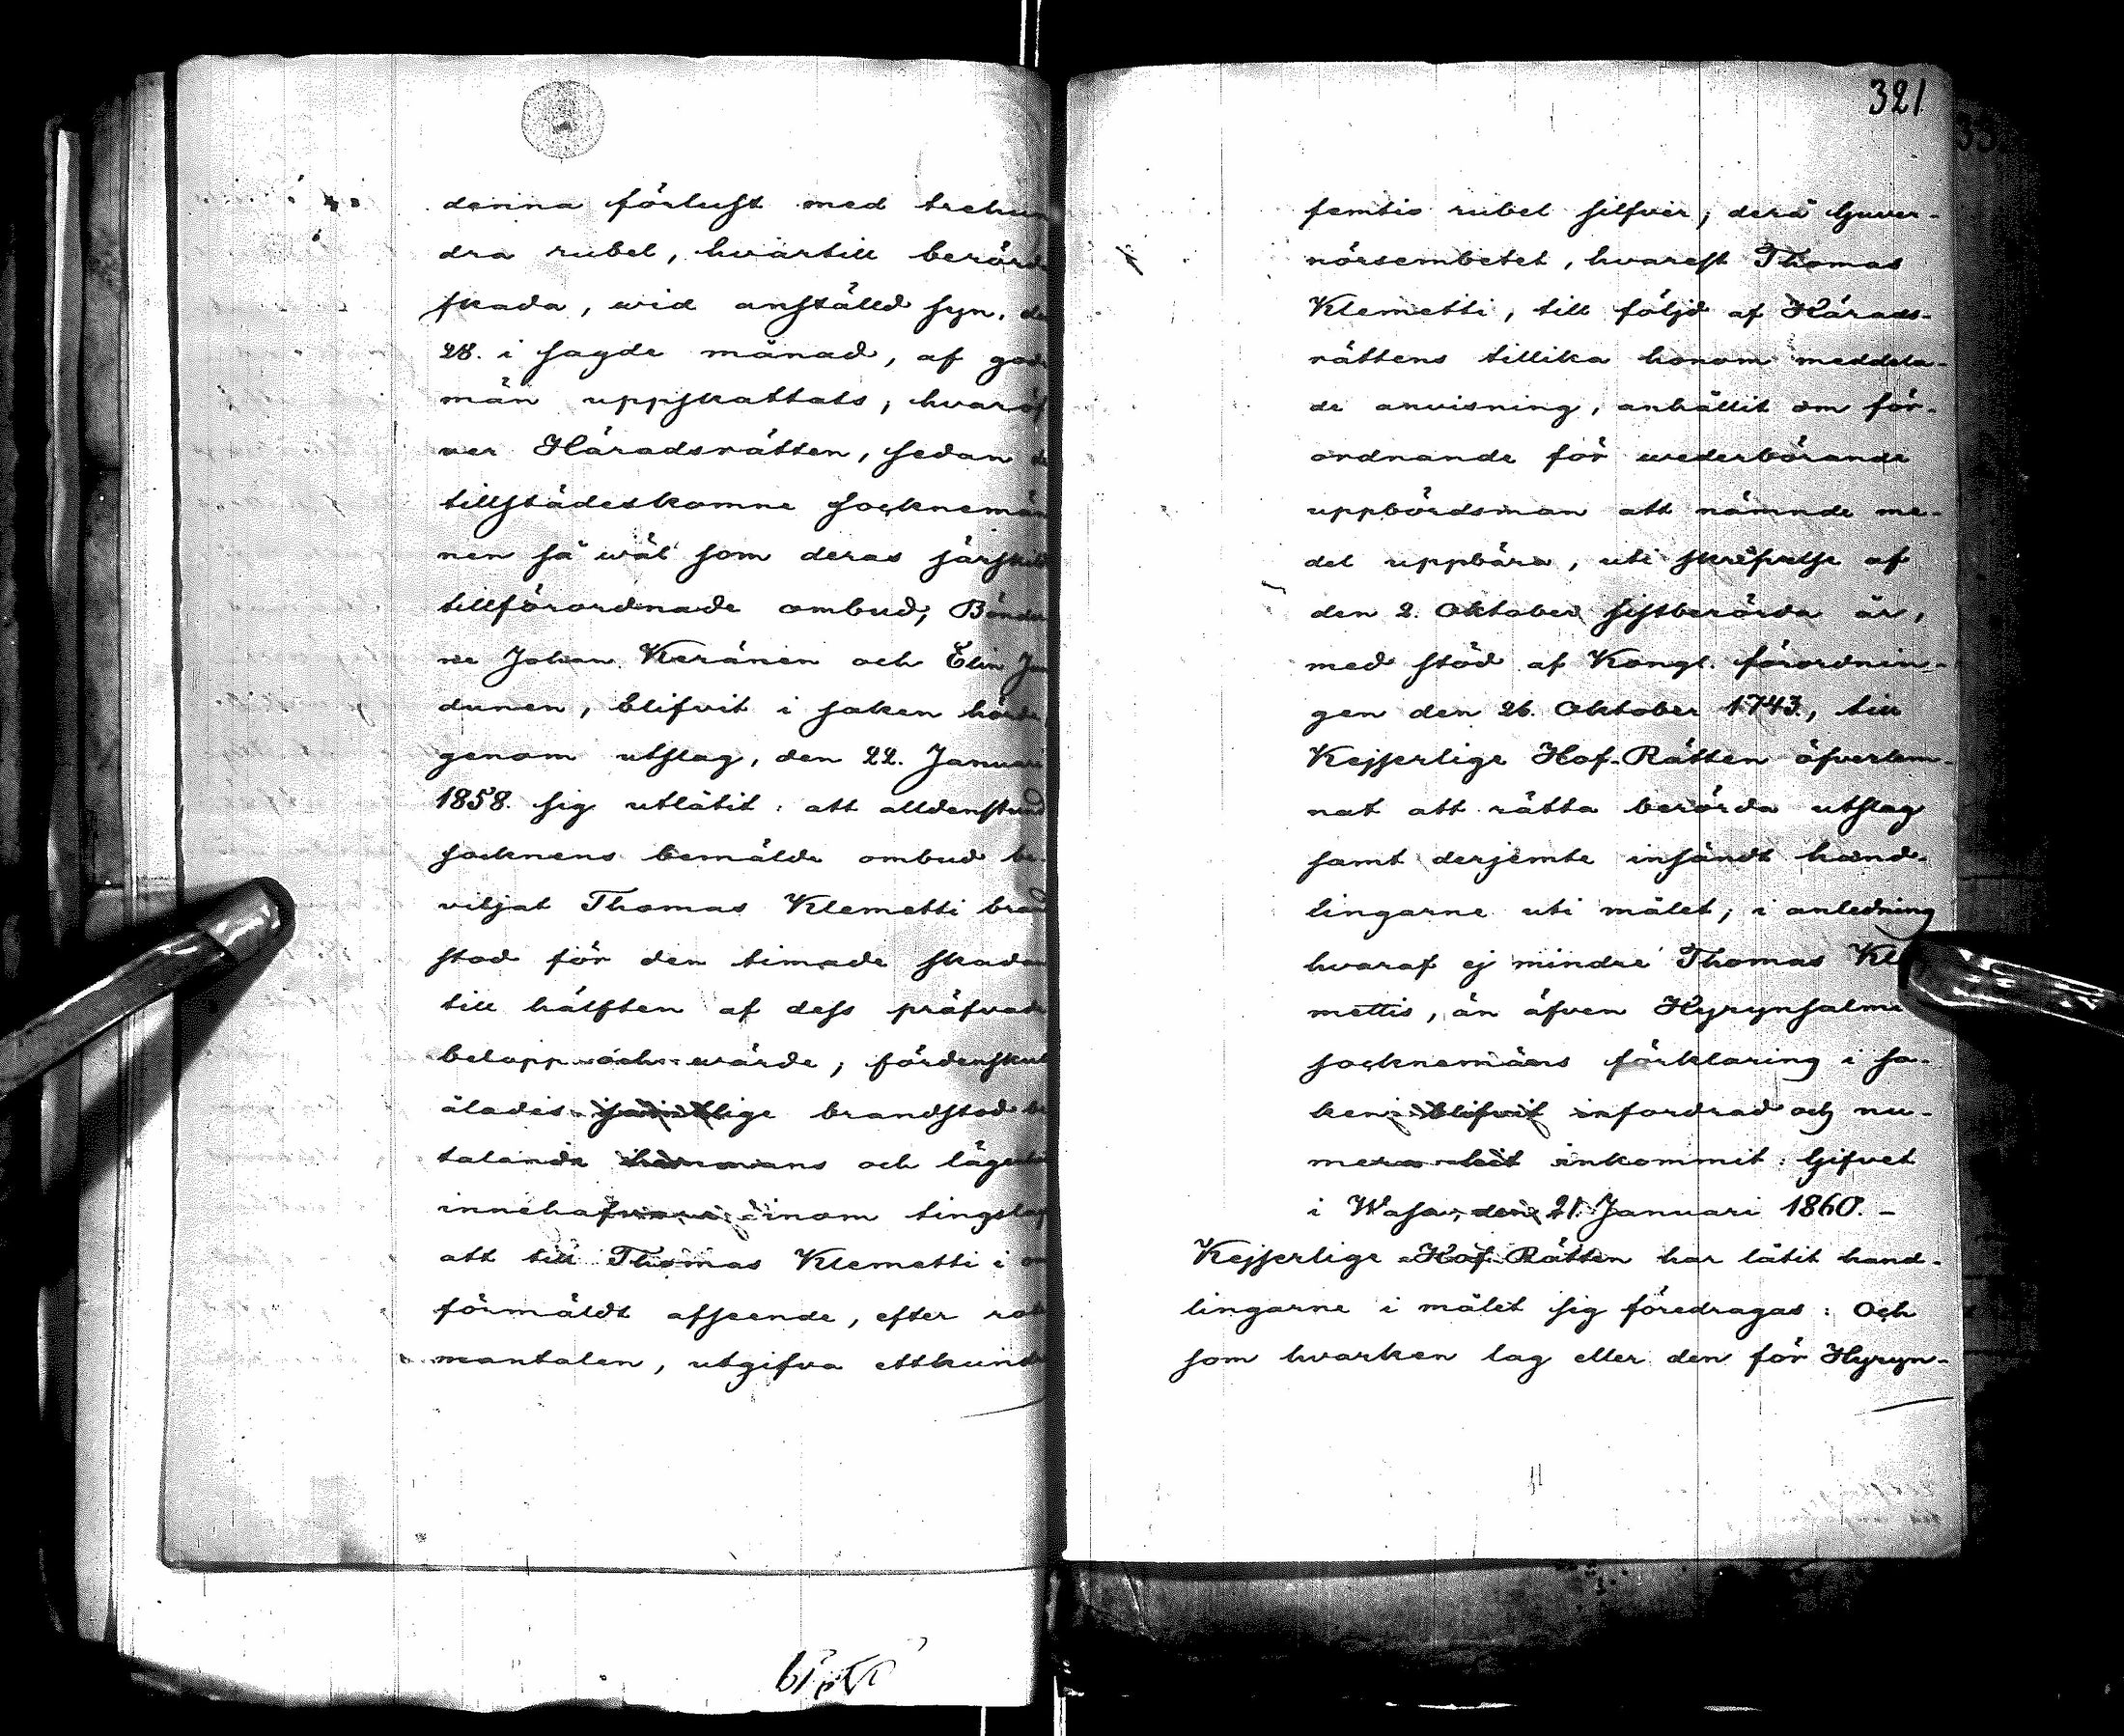 denna förlust med trehun
dra rubel, hvartill berörde
skada, wid anställd syn, de
28. i sagde månad, af gode
män uppskattats, hvaröf
ver Häradsrätten, sedan de
tillstädeskomne socknemän
nen så wäl som deras särskilt
tillförordnade ombud, Bönder
ne Johan Keränen och Elin Jun
dunen, blifvit i saken hörde
genom utslag, den 22. Januari
1858. sig utlåtit: att alldenstund
socknens bemälde ombud be-
viljat Thomas Klemetti brand
stod för den timade skadan
till hälften af dess pröfvade
belopp och wärde, fördenskull
ålades samtlige brandstod be
talande hemmans och lägen
innehafvare inom tingslag
att till Thomas Klemetti i
förmäldt afseende, efter
mantalen, utgifva etthundra
321
femtio rubel silfver, dera Guver-
nörsembetet, hvarest Thomas
Klemetti, till följd af Härads-
rättens tillika honom meddela-
de anvisning, anhållit om för-
ordnande för wederbörande
uppbördsman att nämnde me-
del uppbära, uti skrifvelse af
den 2. Oktober sistberörda år,
med stöd af Kongl. förordnin-
gen den 26. Oktober 1743, till
Kejserlige Hof-Rätten öfverlem-
nat att rätta berörda utslag
samt derjemte insändt hand-
lingarne uti målet; i anledning
hvaraf ej mindre Thomas Kle
mettis, än äfven Hyrynsalmi
socknemäns förklaring i sa-
ken blifvit infordrad och nu-
mera hit inkommit. Gifvet
i Wasa, den 21. Januari 1860. -
Kejserlige Hof-Rätten har låtit hand-
lingarne i målet sig föredragas: Och
som hvarken lag eller den för Hyryn-